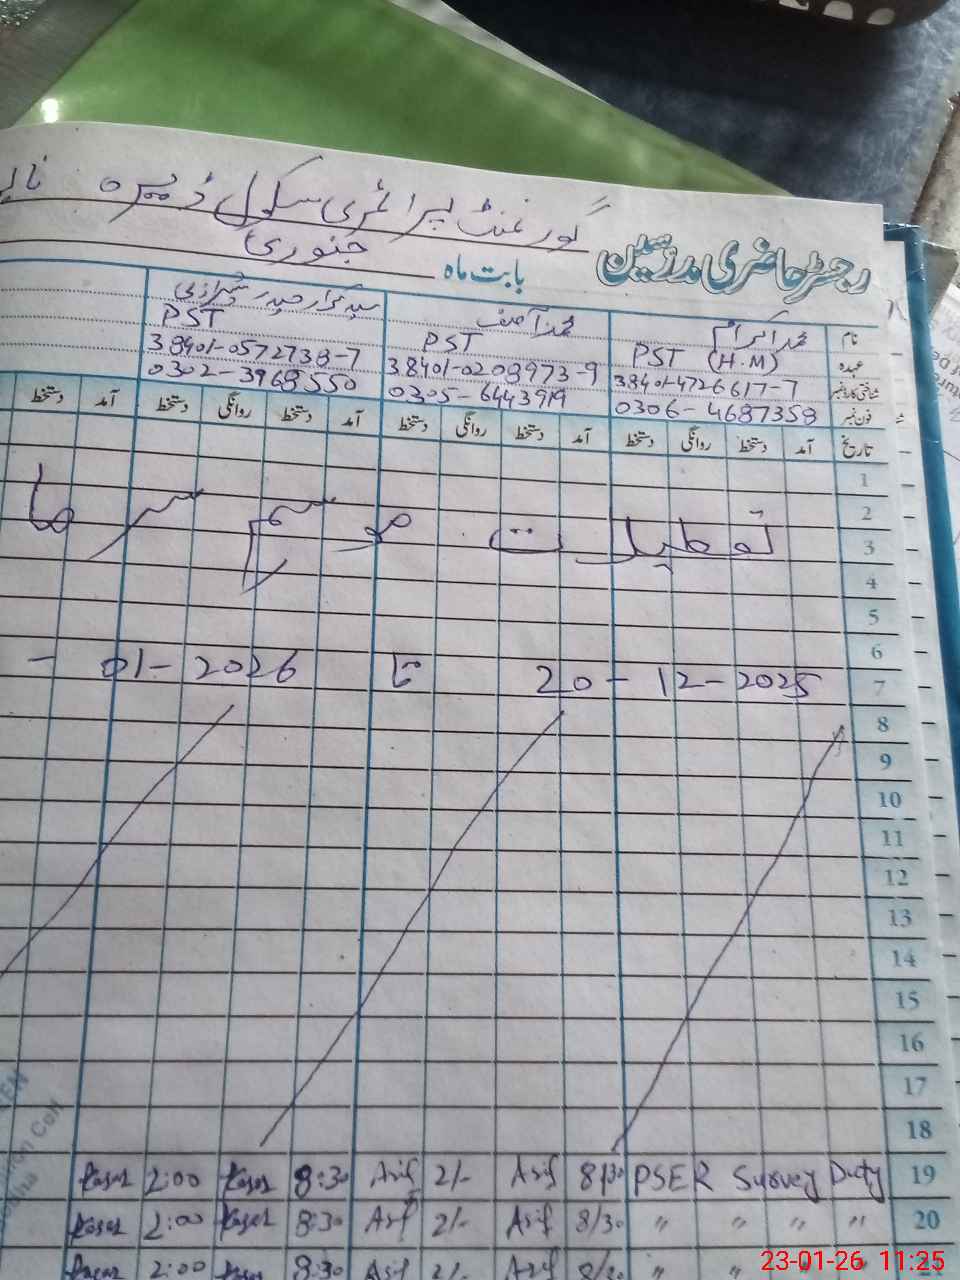 گورنمنٹ پرائمری سکول ڈیرہ
رجسٹر حاضری مدرسین
بابت ماہ جنوری
نام محمد اکرام محمد آصف سید کرار حیدر شیرازی
عہدہ PST (H.M) PST PST
شناختی کارڈ نمبر 38401-4726617-7 38401-0208973-9 38401-0572738-7
فون نمبر 0306-4687358 0305-6443919 0302-3968550
تاریخ آمد دستخط روانگی دستخط آمد دستخط روانگی دستخط آمد دستخط روانگی دستخط آمد دستخط
1
2
3
تعطیلات موسم سرما
4
5
6
7
20-12-2025 تا 01-2026 -
8
9
10
11
12
13
14
15
16
17
18
19 PSER Survey Duty 8/30 Asif 2/- Asif 8:30 Kasar 2:00 Kasar
20 " " " " 8/30 Asif 2/- Asif 8:30 Kasar 2:00 Kasar
21 Asif 2/- Asif 8:30 2:00
23-01-26 11:25